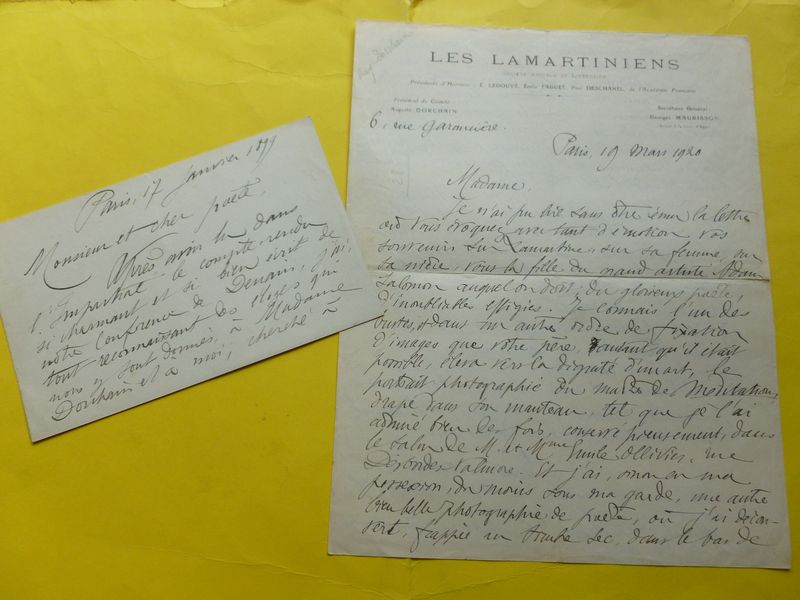 Paris, 17 janvier 1899
Monsieur et cher poète,
Après avoir lu dans
l'Impartial le compte-rendu
si charmant et si bien écrit de
notre Conférence de Denain, j'ai,
tout reconnaissant des éloges qui
nous y sont donnés, à Madame
Dorchain et à moi, cherché à
Aug. Dorchain
LES LAMARTINIENS
Présidents d'Honneur : E. LEGOUVÉ, Émile FAGUET, Paul DESCHANEL, de l'Académie Française
Président du Comité
Auguste DORCHAIN
Secrétaire Général
Georges MAURISSON
6, rue Garancière.
Paris, 19 mars 1920
Madame,
Je n'ai pu lire sans être ému la lettre
où vous évoquez avec tant d'émotion vos
souvenirs sur Lamartine, sur sa femme, sur
sa nièce, vous la fille du grand artiste Adam
Salomon auquel on doit, du glorieux poète,
d'inoubliables effigies. Je connais l'un des
bustes, et dans un autre ordre de fixation
d'images que votre père, autant qu'il était
possible, éleva vers la dignité d'un art, le
portrait photographié du maître des Méditations,
drapé dans son manteau, tel que je l'ai
admiré bien des fois, conservé pieusement, dans
le salon de M. et Mme Emile Ollivier, rue
Desbordes Valmore. Et j'ai, sinon en ma
possession, du moins sous ma garde, une autre
bien belle photographie du poète, où j'ai décou-
vert, frappée un timbre sec, dans le bas de